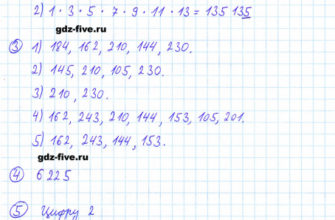 2) 1 · 3 · 5 · 7 · 9 · 11 · 13 = 135 135
gdz-five.ru
③ 1) 184, 162, 210, 144, 230.
2) 145, 210, 105, 230.
3) 210, 230.
4) 162, 243, 210, 144, 153, 105, 201.
5) 162, 243, 144, 153.
gdz-five.ru
④ 6225
⑤ Цифру 2